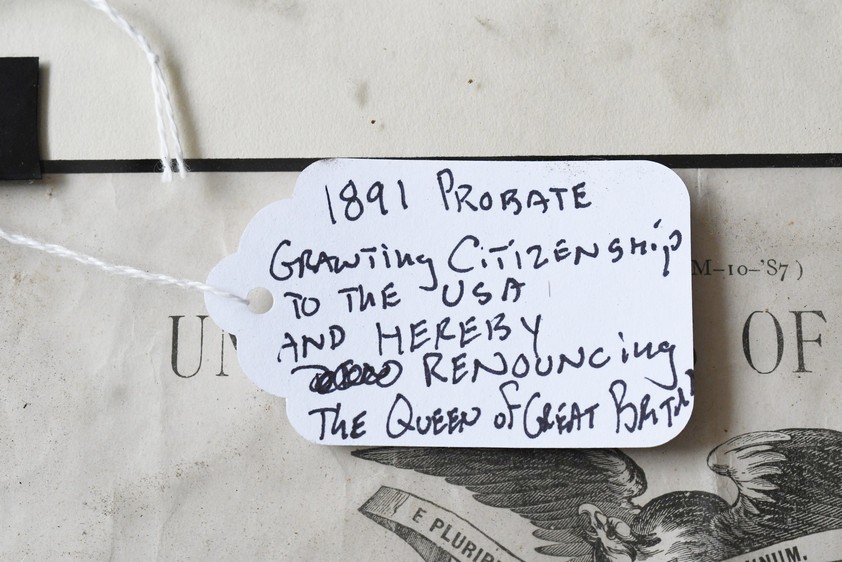 1891 PROBATE
GRANTING CITIZENSHIP
TO THE USA
AND HEREBY
RENOUNCING
THE QUEEN OF GREAT
M-10-'87)
OF
E PLURIB
UNUM.